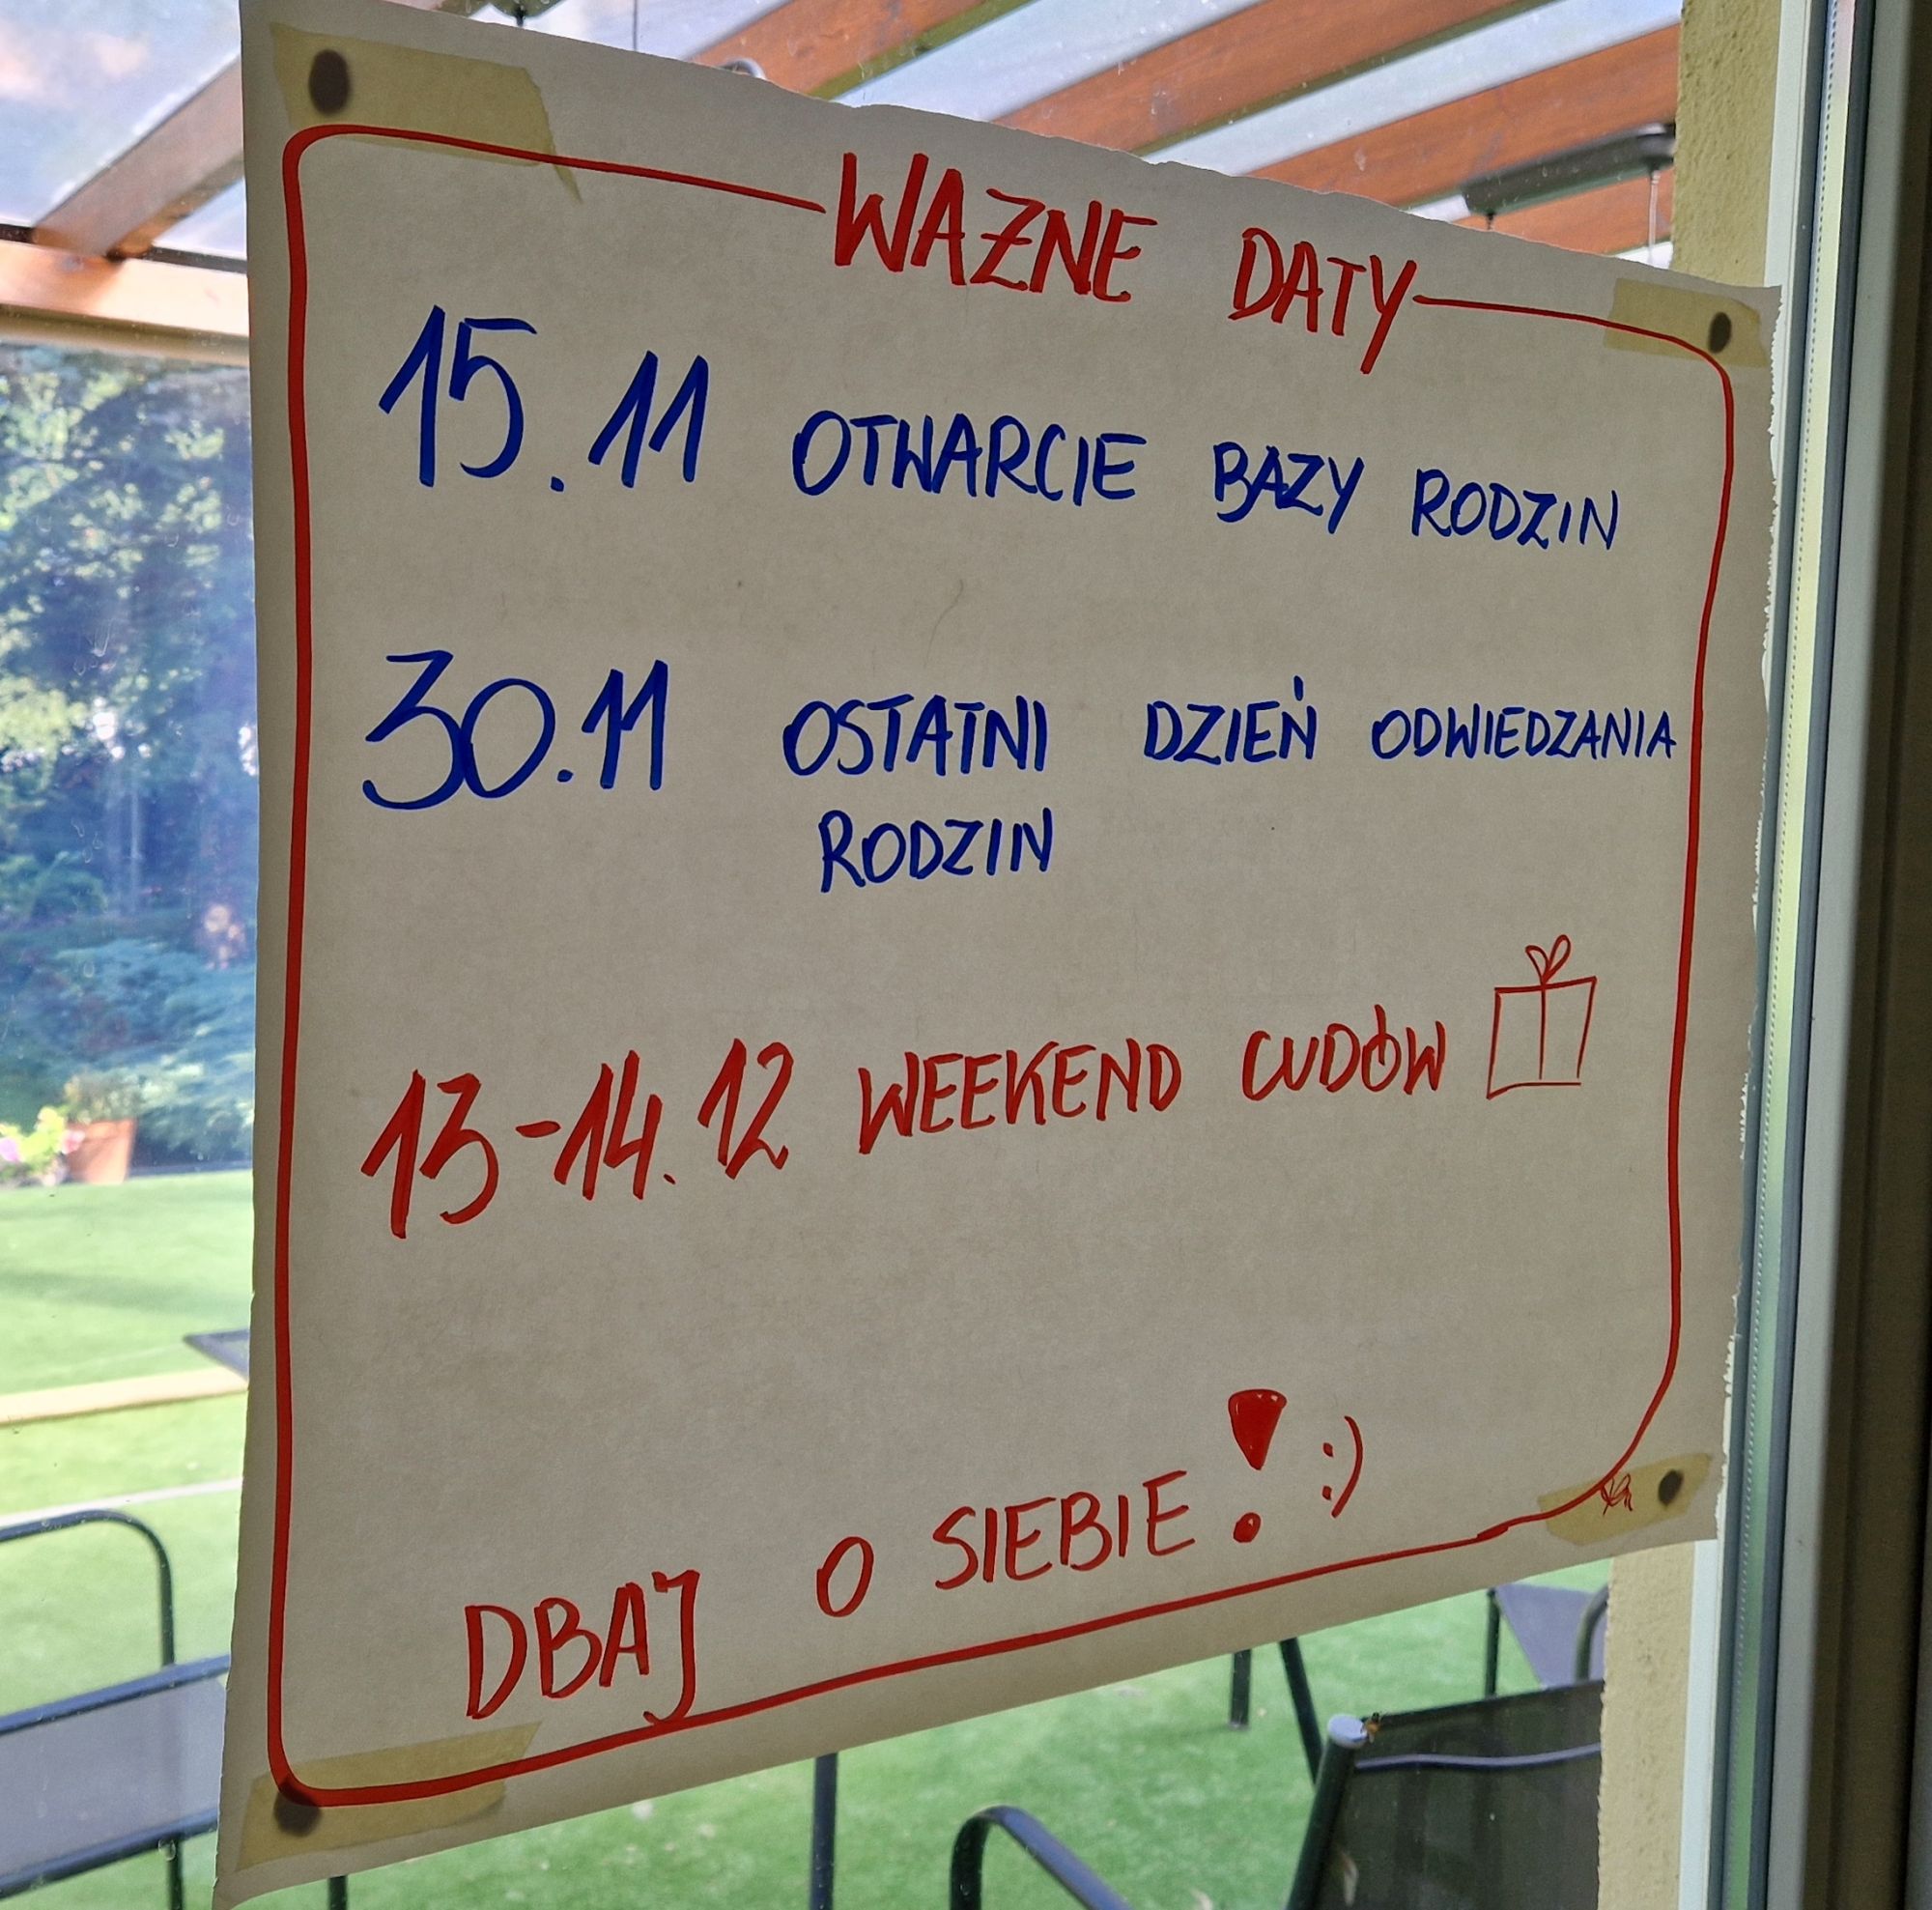 WAŻNE DATY
15.11 OTWARCIE BAZY RODZIN
30.11 OSTATNI DZIEŃ ODWIEDZANIA
RODZIN
13-14.12 WEEKEND CUDÓW
DBAJ O SIEBIE! :)